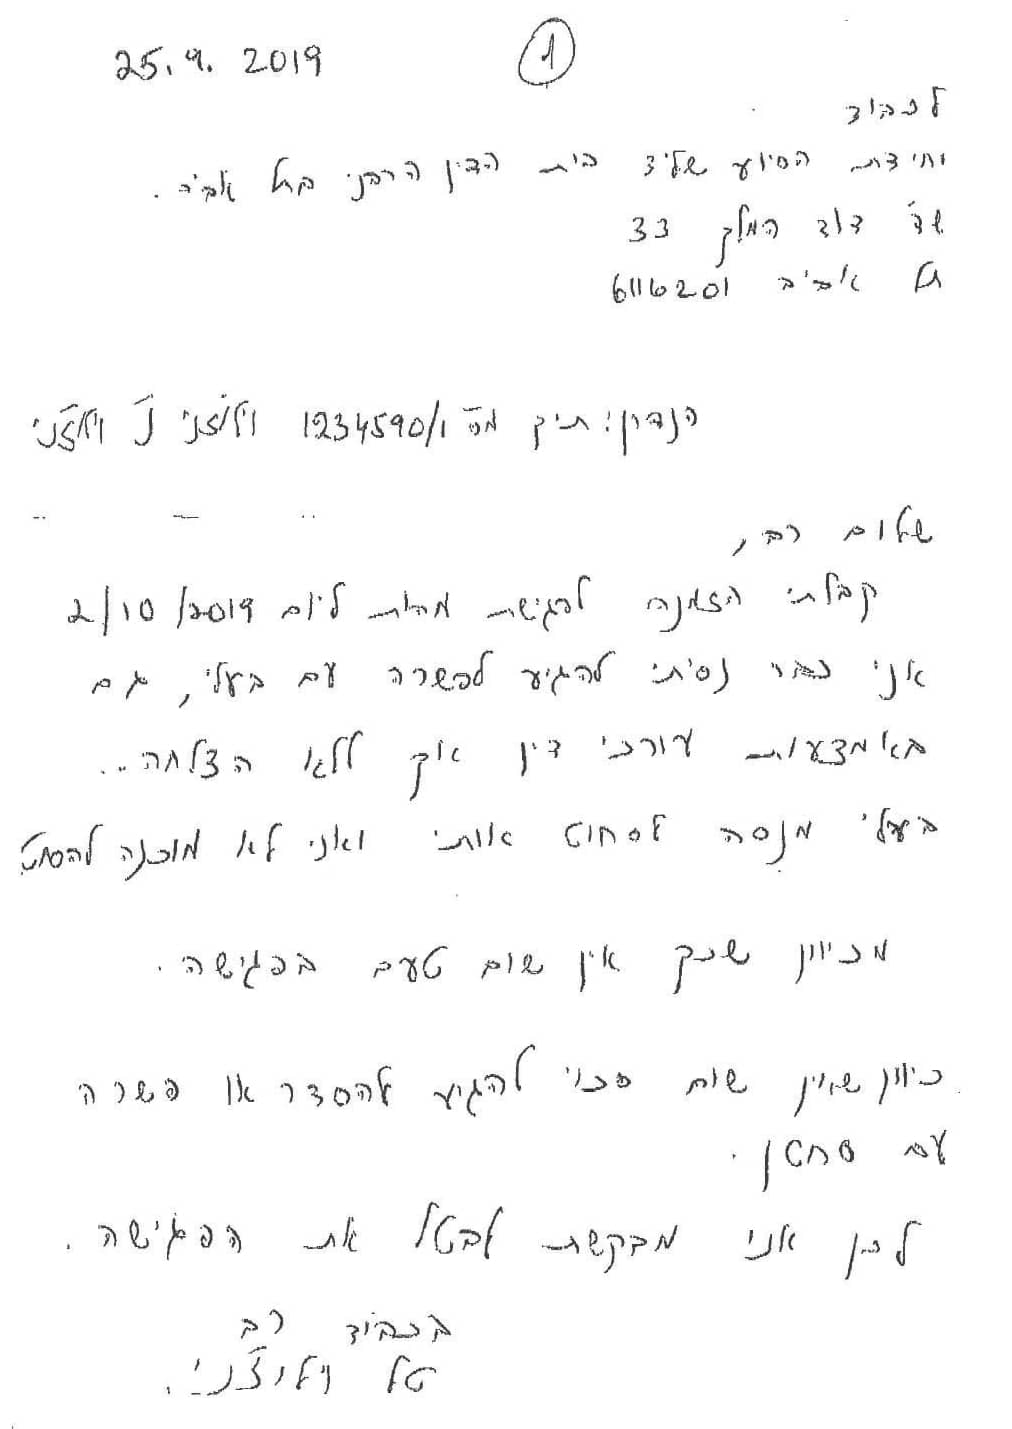 25.9.2019
1
לכבוד
יחידת הסיוע שליד בית הדין הרבני בתל אביב.
שד' דוד המלך 33
תל אביב 6116201
הנדון: תיק מס' 1234590/1 וילוז'ני נ' וילוז'ני
שלום רב,
קבלתי הזמנה לפגישת מהות ליום 2/10/2019
אני כבר נסיתי להגיע לפשרה עם בעלי, גם
באמצעות עורכי דין אך ללא הצלחה..
בעלי מנסה לסחוט אותי ואני לא מוכנה להסחט
מכיוון שכך אין שום טעם בפגישה.
כיוון שאין שום סכוי להגיע להסדר או פשרה
עם סחטן.
לכן אני מבקשת לבטל את הפגישה.
בכבוד רב
טל וילוז'ני.